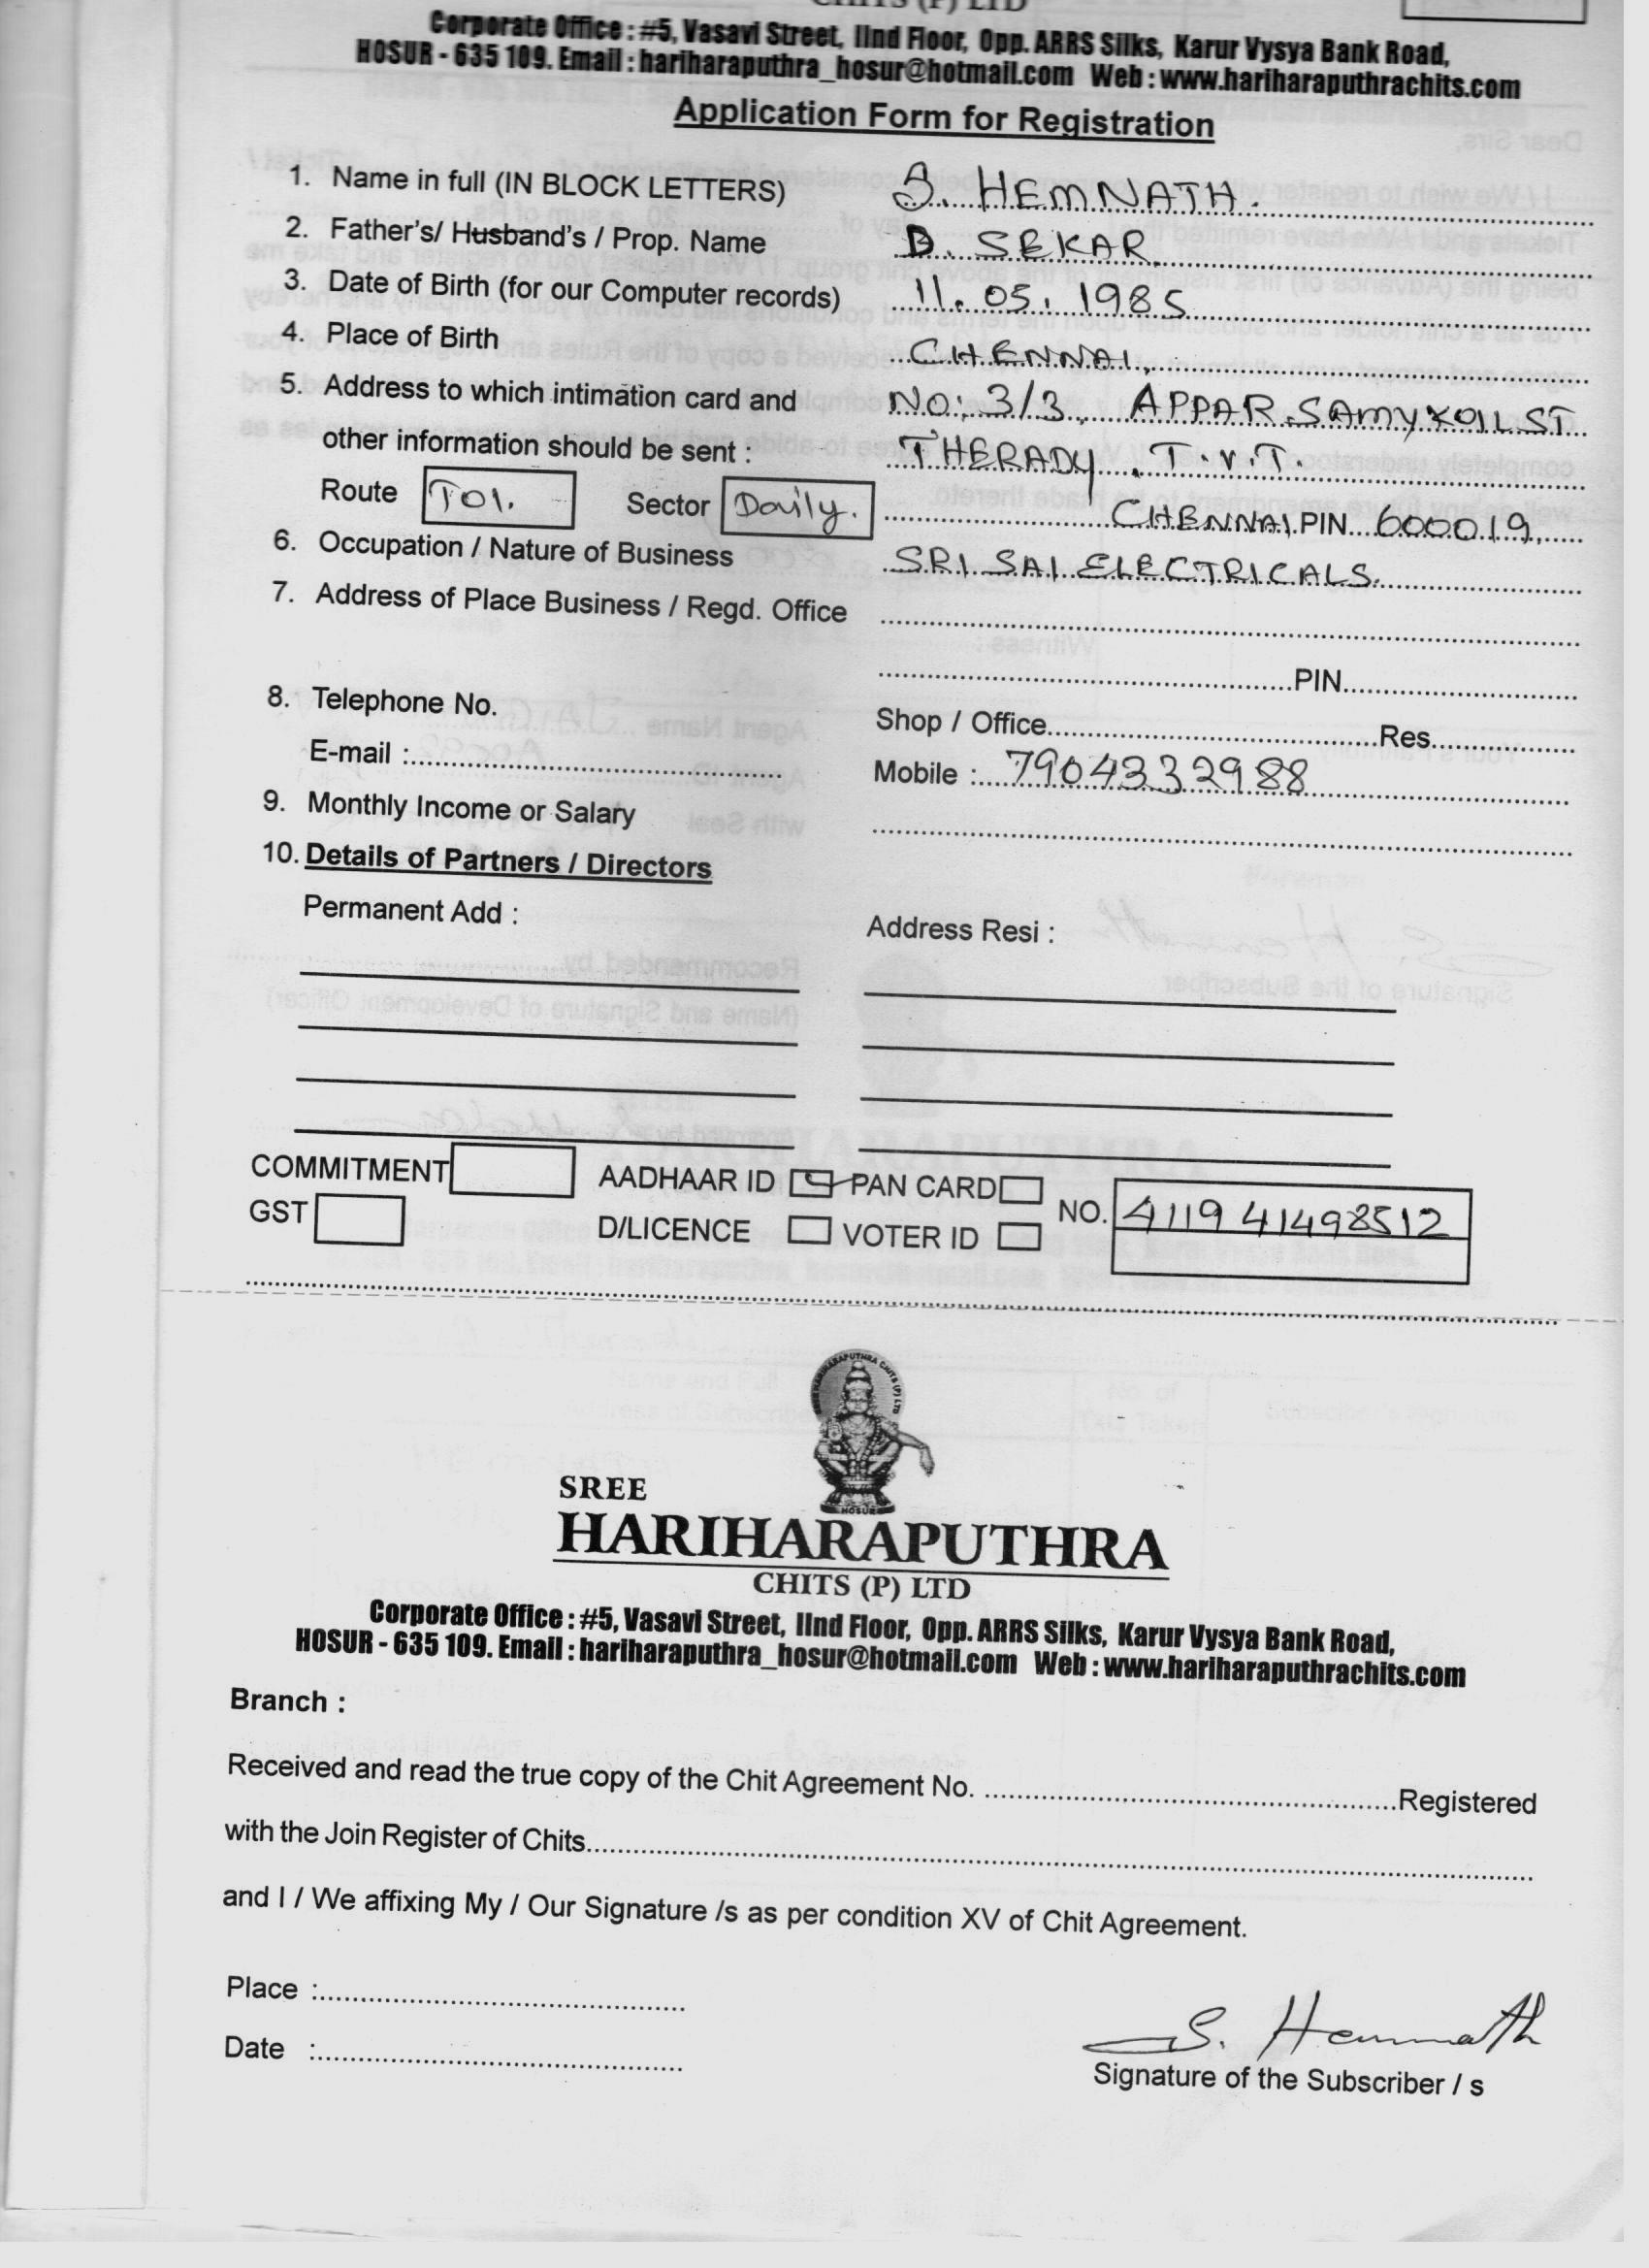 CHITS (P) LTD
Corporate Office : #5, Vasavi Street, IInd Floor, Opp. ARRS Silks, Karur Vysya Bank Road,
HOSUR - 635 109. Email : hariharaputhra_hosur@hotmail.com Web : www.hariharaputhrachits.com
Application Form for Registration
1. Name in full (IN BLOCK LETTERS) S. HEMNATH.
2. Father's/ Husband's / Prop. Name D. SEKAR.
3. Date of Birth (for our Computer records) 11. 05. 1985
4. Place of Birth CHENNAI,
5. Address to which intimation card and NO: 3/3, APPAR SAMY KOIL ST
other information should be sent : THERADY . T.V.T.
Route T01. Sector Daily. CHENNAI PIN 600019,
6. Occupation / Nature of Business SRI SAI ELECTRICALS.
7. Address of Place Business / Regd. Office
PIN
8. Telephone No. Shop / Office Res
E-mail : Mobile : 7904332988
9. Monthly Income or Salary
10. Details of Partners / Directors
Permanent Add : Address Resi :
COMMITMENT AADHAAR ID PAN CARD
GST D/LICENCE VOTER ID NO. 4119 41498512
HARIHARAPUTHRA CHITS (P) LTD
HOSUR
SREE
HARIHARAPUTHRA
CHITS (P) LTD
Corporate Office : #5, Vasavi Street, IInd Floor, Opp. ARRS Silks, Karur Vysya Bank Road,
HOSUR - 635 109. Email : hariharaputhra_hosur@hotmail.com Web : www.hariharaputhrachits.com
Branch :
Received and read the true copy of the Chit Agreement No. Registered
with the Join Register of Chits
and I / We affixing My / Our Signature /s as per condition XV of Chit Agreement.
Place :
Date :
S. Hemnath
Signature of the Subscriber / s